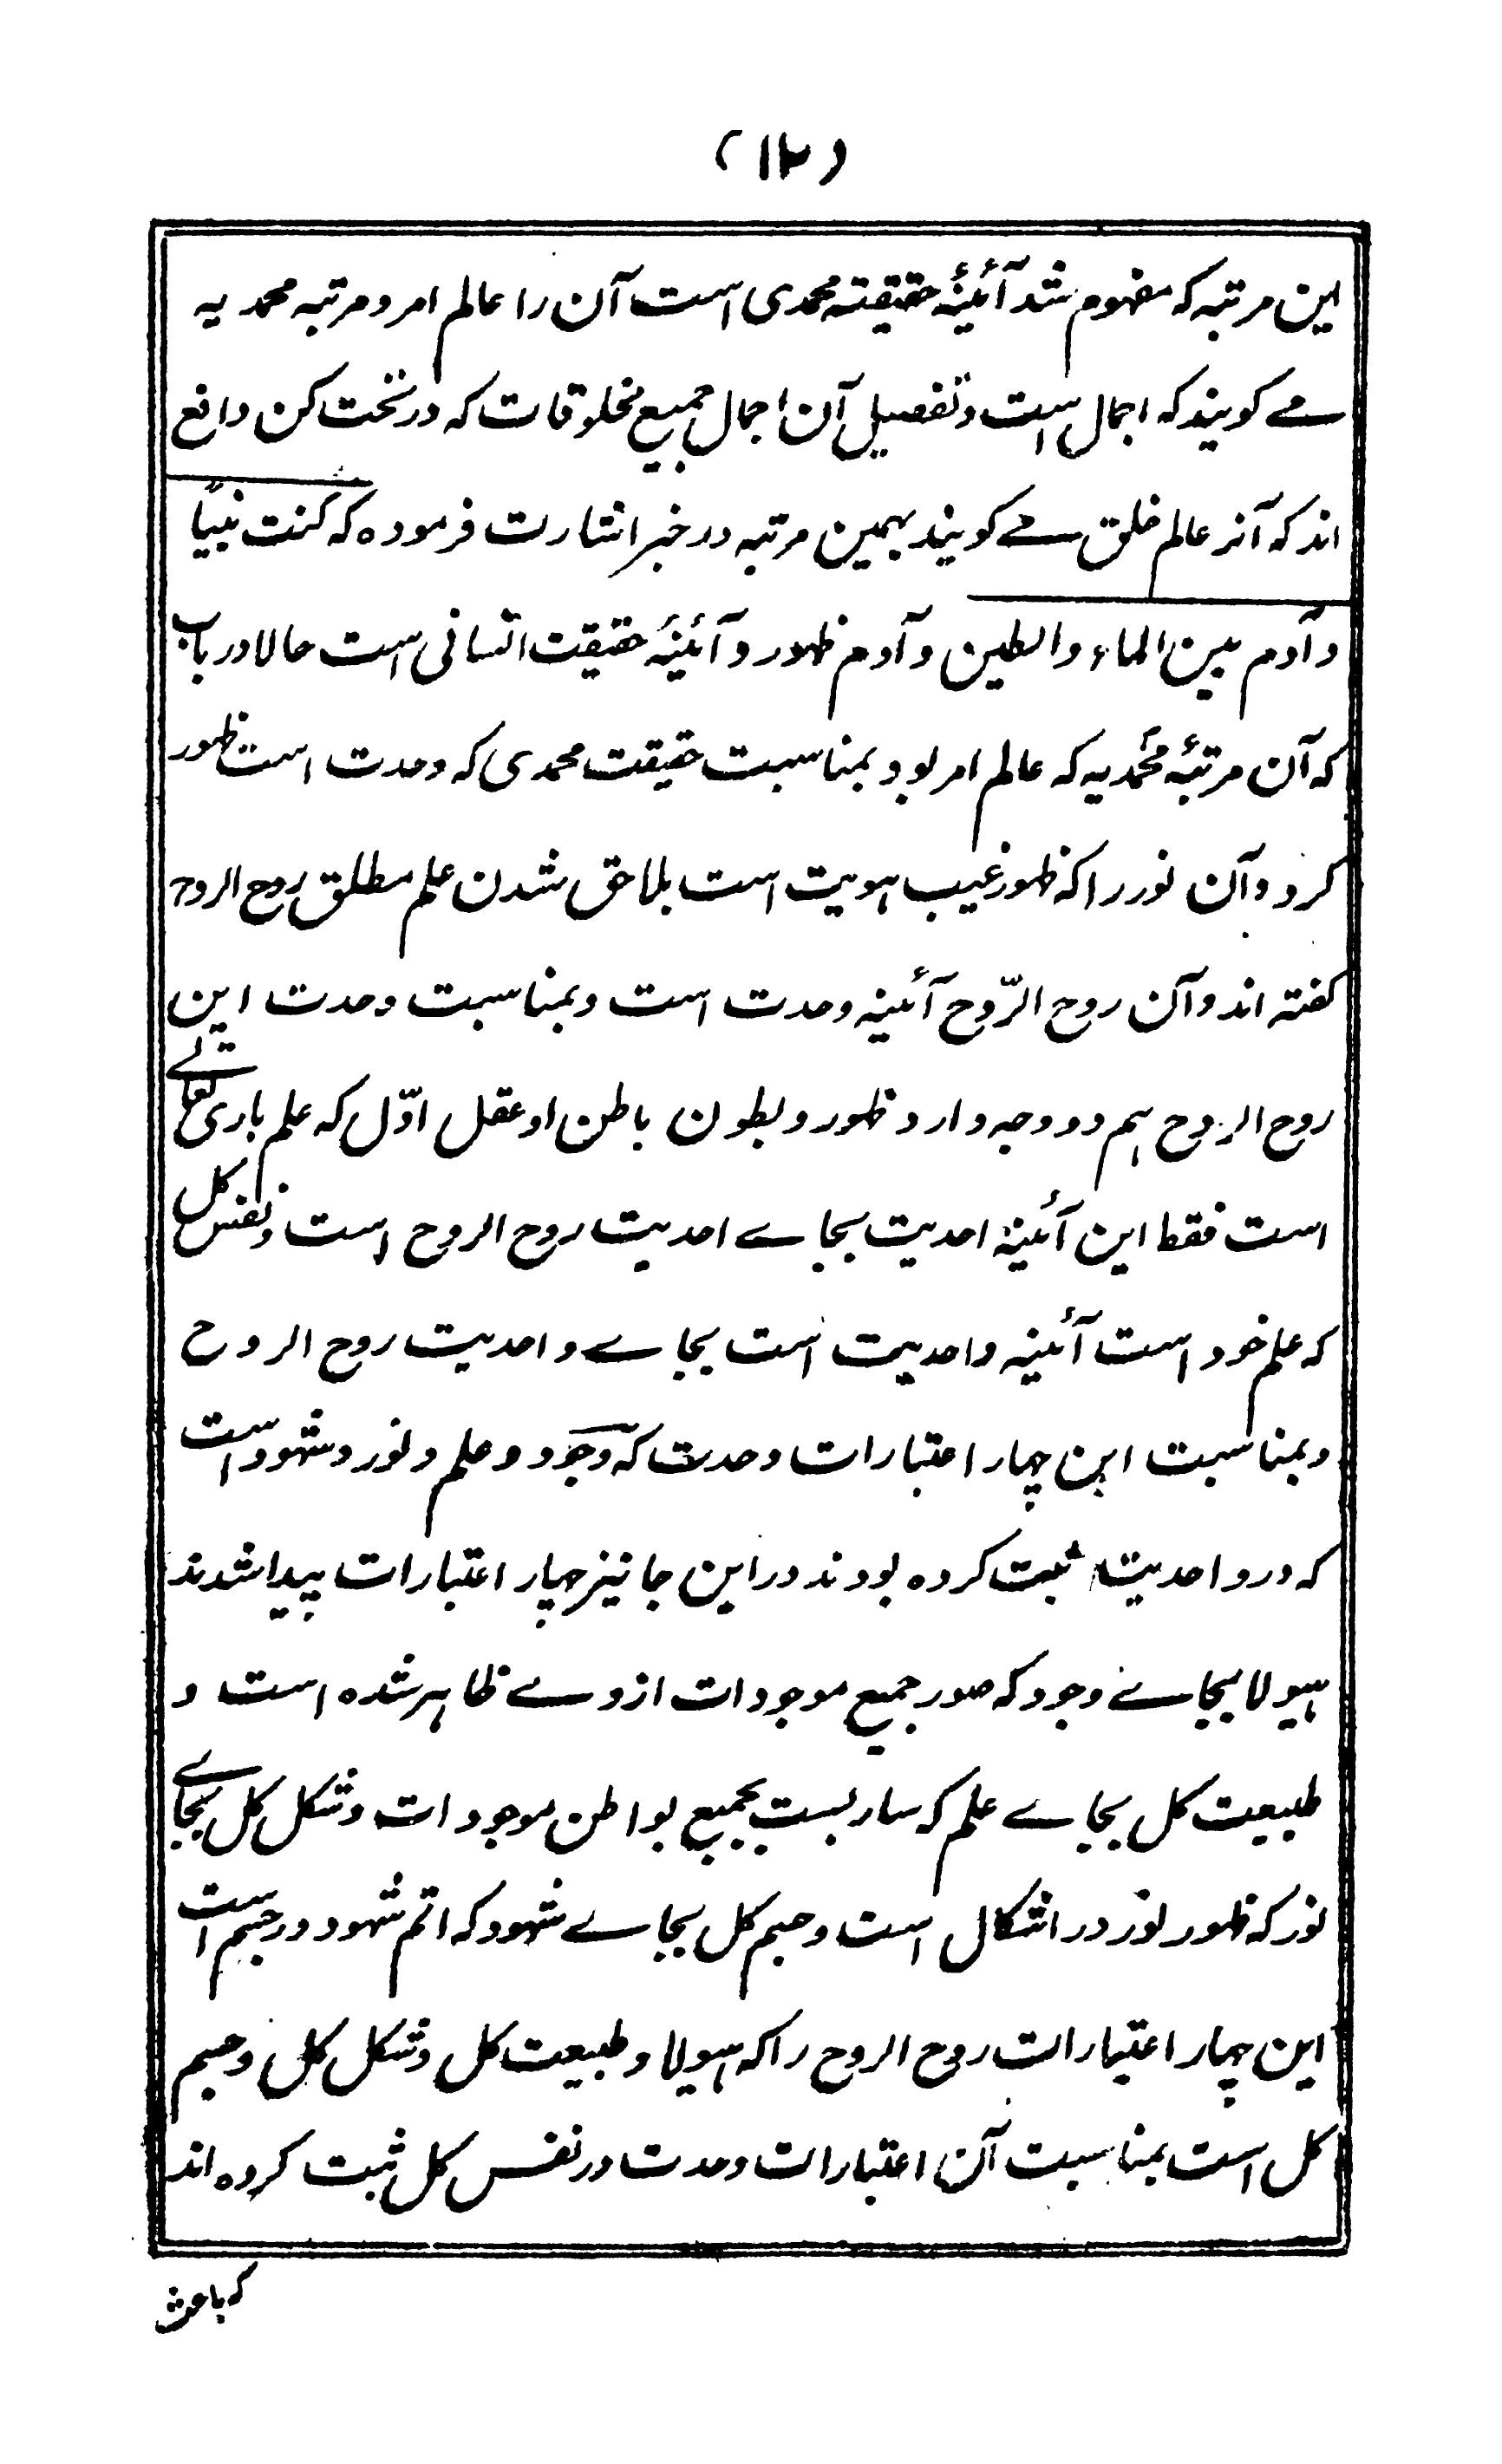 (۱۲)
این مرتبہ کہ مفہوم شد آئینۂ حقیقتہ محمدی است آن را عالم امر و مرتبہ محمدیہ
مے کویند کہ اجمال است و تفصیل آن اجمال جمیع مخلوقات کہ در تحت کن واقع
اند کہ آنر عالم خلق مے کویند بہمین مرتبہ در خبر اشارت فرمودہ کہ کنت نبیًا
و آدم بین الماء والطین و آدم ظہور و آئینۂ حقیقت انسانی است حالا دریاب
کہ آن مرتبۂ محمّدیہ کہ عالم امر بود بمناسبت حقیقت محمدی کہ وحدت است ظہور
کرد و آن نور را کہ ظہور غیب ہویت است بلاحق شدن علم مطلق روح الروح
کفتہ اند و آن روح الرّوح آئینہ وحدت است و بمناسبت وحدت این
روح الروح ہم دو وجہ دارد ظہور و بطون باطن او عقل اوّل کہ علم باری تعالے
است فقط این آئینۂ احدیت بجاے احدیت روح الروح است و نفس کل
کہ علم خود است آئینہ واحدیت است بجاے واحدیت روح الروح
و بمناسبت این چہار اعتبارات وحدت کہ وجود و علم و نور و شہود است
کہ در واحدیت ثبت کردہ بودند در این جا نیز چہار اعتبارات پیدا شدند
ہیولا بجاے وجود کہ صور جمیع موجودات ازوے ظاہر شدہ است و
طبیعت کل بجاے علم کہ ساریست بجمیع بواطن موجودات و شکل کل بجاے
نور کہ ظہور نور در اشکال است و جسم کل بجاے شہود کہ اتم شہود در جسم است
این چہار اعتبارات روح الروح را کہ ہیولا و طبیعت کل و شکل کل و جسم
کل است بمناسبت آن اعتبارات وحدت در نفس کل ثبت کردہ اند
کہ باعث